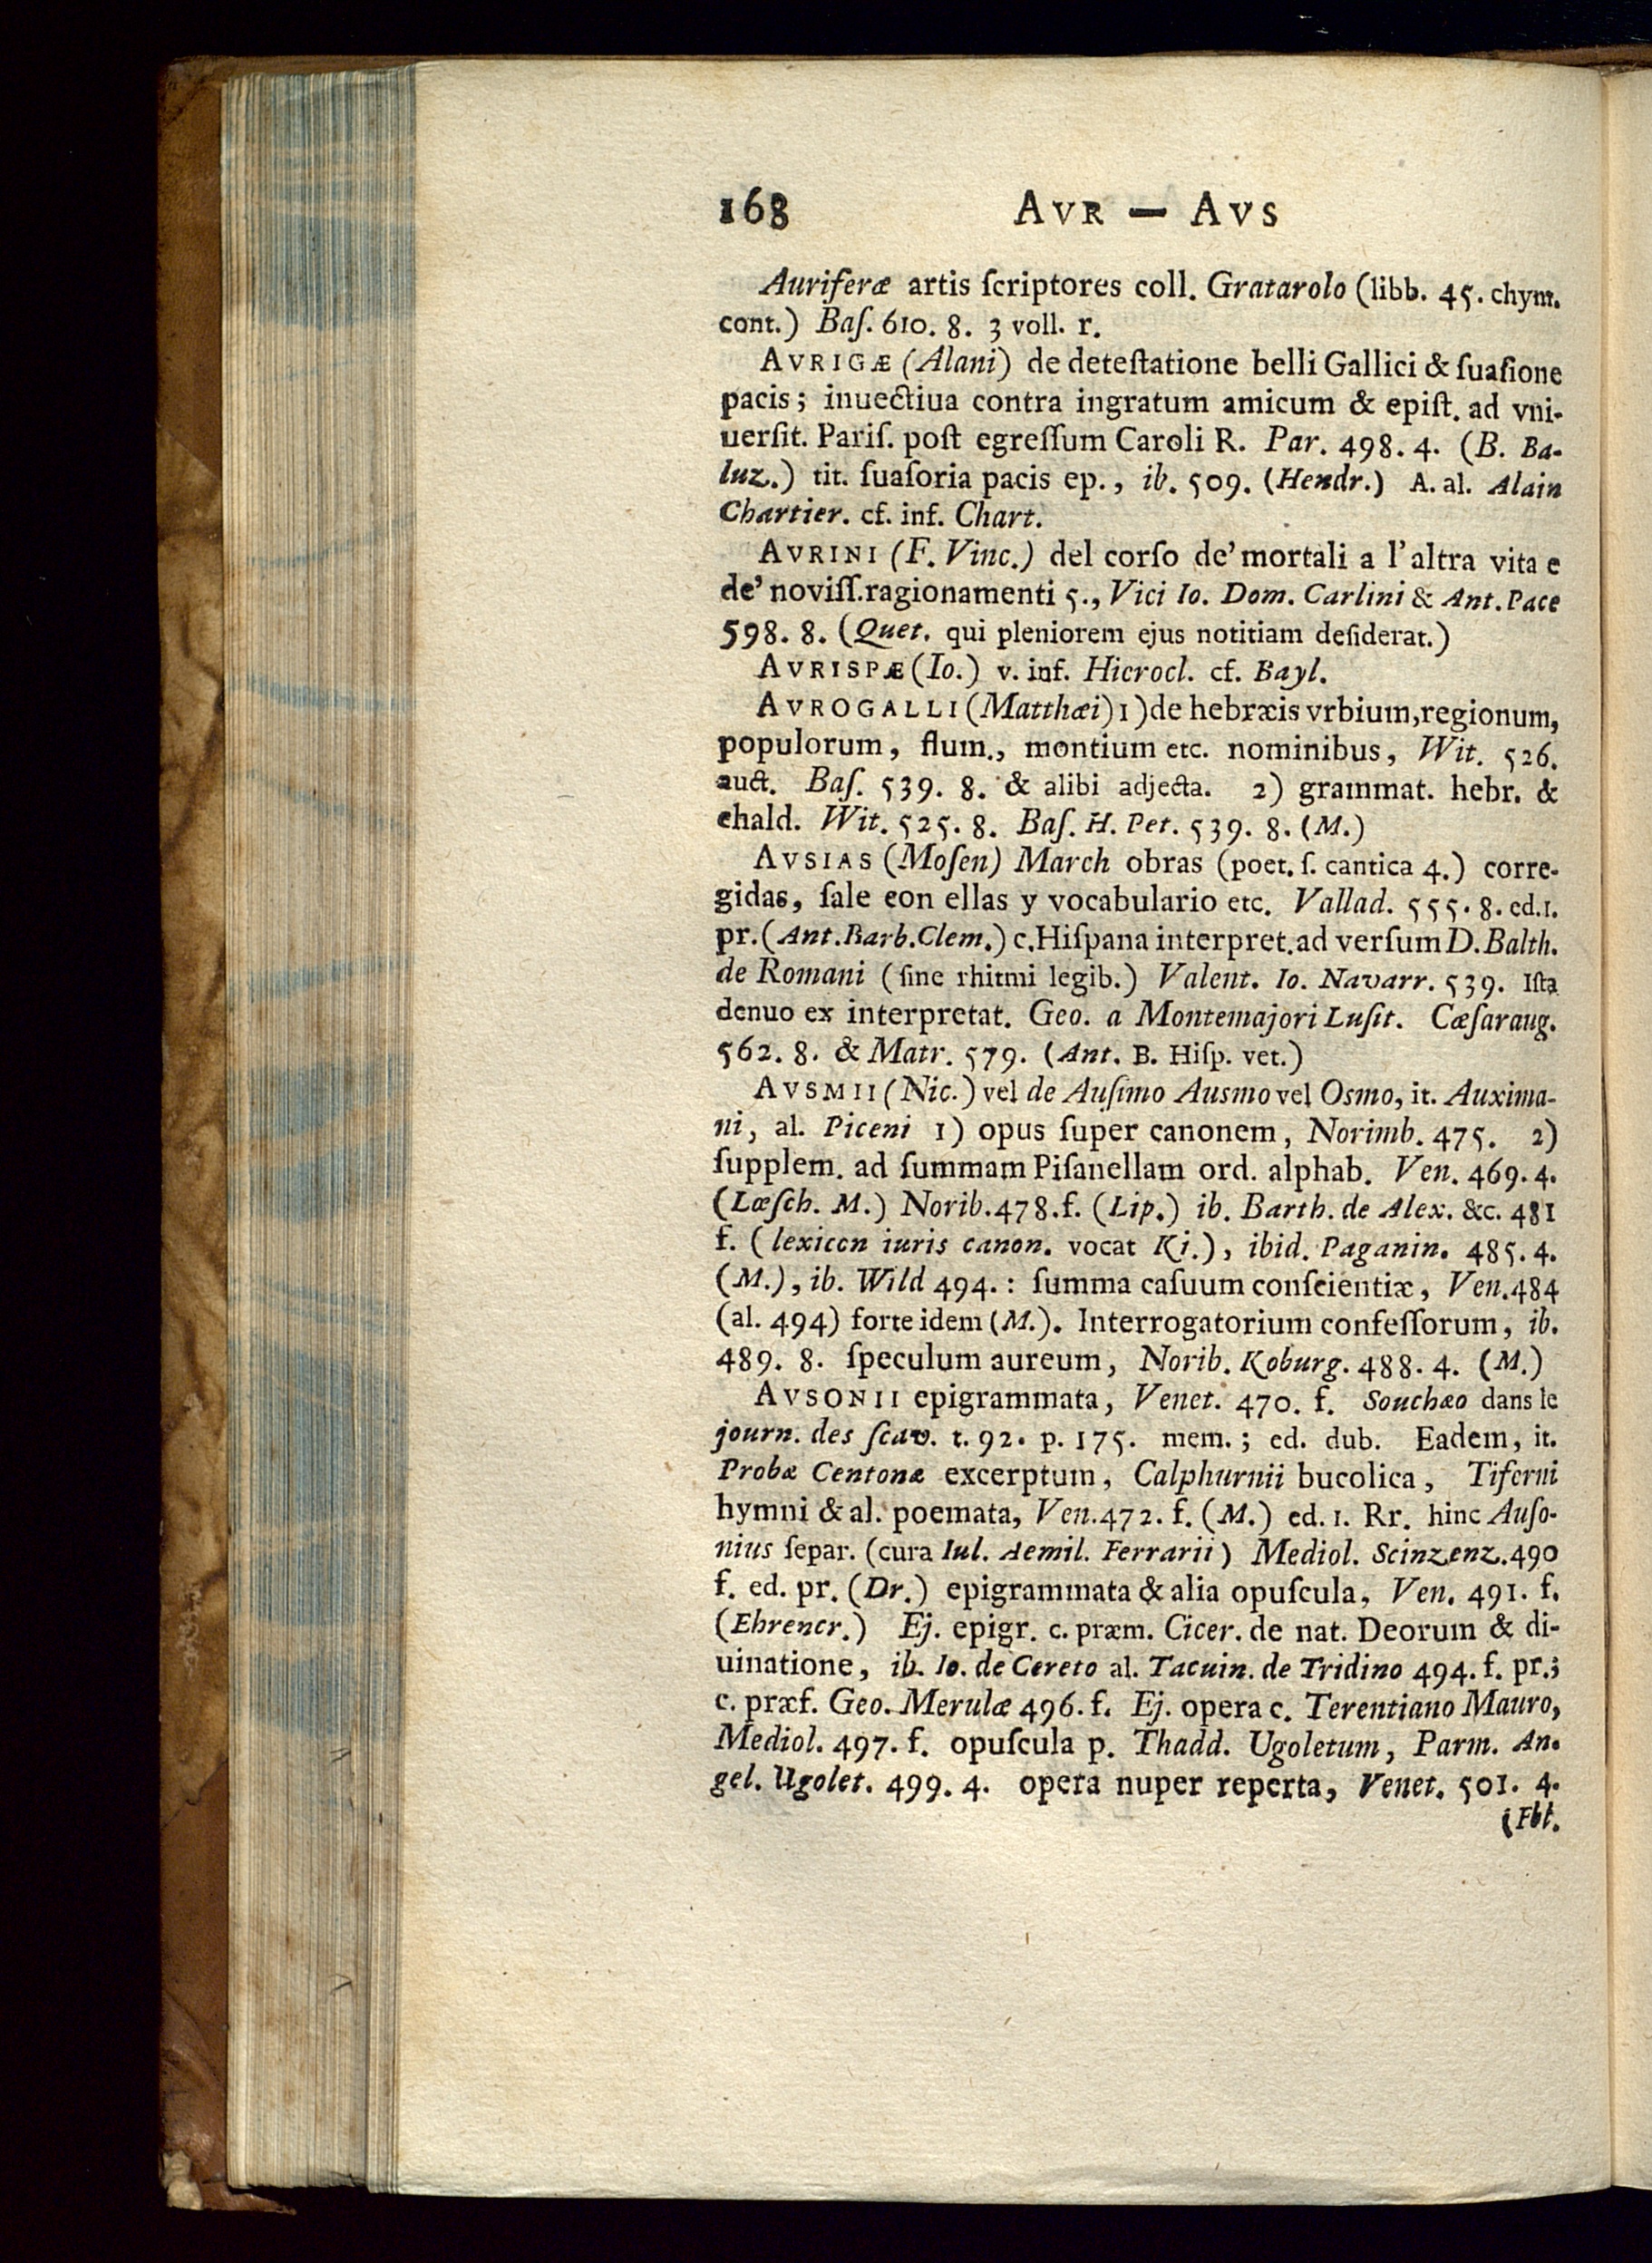 168 AVR — AVS
Auriferæ artis ſcriptores coll. Gratarolo (libb. 45. chym.
cont.) Baſ. 610. 8. 3 voll. r.
AVRIGÆ (Alani) de deteſtatione belli Gallici & ſuaſione
pacis; inuectiua contra ingratum amicum & epiſt. ad vni-
uerſit. Pariſ. poſt egreſſum Caroli R. Par. 498. 4. (B. Ba-
luz.) tit. ſuaſoria pacis ep., ib. 509. (Hendr.) A. al. Alain
Chartier. cf. inf. Chart.
AVRINI (F. Vinc.) del corſo de' mortali a l'altra vita e
de' noviſſ. ragionamenti 5., Vici Io. Dom. Carlini & Ant. Pace
598. 8. (Quet. qui pleniorem ejus notitiam deſiderat.)
AVRISPÆ (Io.) v. inf. Hierocl. cf. Bayl.
AVROGALLI (Matthæi) 1) de hebræis vrbium, regionum,
populorum, flum., montium etc. nominibus, Wit. 526.
auct. Baſ. 539. 8. & alibi adjecta. 2) grammat. hebr. &
chald. Wit. 525. 8. Baſ. H. Pet. 539. 8. (M.)
AVSIAS (Moſen) March obras (poet. ſ. cantica 4.) corre-
gidas, ſale eon ellas y vocabulario etc. Vallad. 555. 8. ed. 1.
pr. (Ant. Barb. Clem.) c. Hiſpana interpret. ad verſum D. Balth.
de Romani (ſine rhitmi legib.) Valent. Io. Navarr. 539. Iſta
denuo ex interpretat. Geo. a Montemajori Luſit. Cæſaraug.
562. 8. & Matr. 579. (Ant. B. Hiſp. vet.)
AVSMII (Nic.) vel de Auſimo Ausmo vel Osmo, it. Auxima-
ni, al. Piceni 1) opus ſuper canonem, Norimb. 475. 2)
ſupplem. ad ſummam Piſanellam ord. alphab. Ven. 469. 4.
(Læſch. M.) Norib. 478. f. (Lip.) ib. Barth. de Alex. &c. 481
f. (lexicon iuris canon. vocat Ki.), ibid. Paganin. 485. 4.
(M.), ib. Wild 494. : ſumma caſuum conſcientiæ, Ven. 484
(al. 494) forte idem (M.). Interrogatorium confeſſorum, ib.
489. 8. ſpeculum aureum, Norib. Koburg. 488. 4. (M.)
AVSONII epigrammata, Venet. 470. f. Souchæo dans le
journ. des ſcav. t. 92. p. 175. mem. ; ed. dub. Eadem, it.
Probæ Centonæ excerptum, Calphurnii bucolica, Tiferni
hymni & al. poemata, Ven. 472. f. (M.) ed. 1. Rr. hinc Auſo-
nius ſepar. (cura Iul. Aemil. Ferrarii) Mediol. Scinzenz. 490
f. ed. pr. (Dr.) epigrammata & alia opuſcula, Ven. 491. f.
(Ehrencr.) Ej. epigr. c. præm. Cicer. de nat. Deorum & di-
uinatione, ib. Io. de Cereto al. Tacuin. de Tridino 494. f. pr.;
c. præf. Geo. Merulæ 496. f. Ej. opera c. Terentiano Mauro,
Mediol. 497. f. opuſcula p. Thadd. Ugoletum, Parm. An-
gel. Ugolet. 499. 4. opera nuper reperta, Venet. 501. 4.
(Fbt.